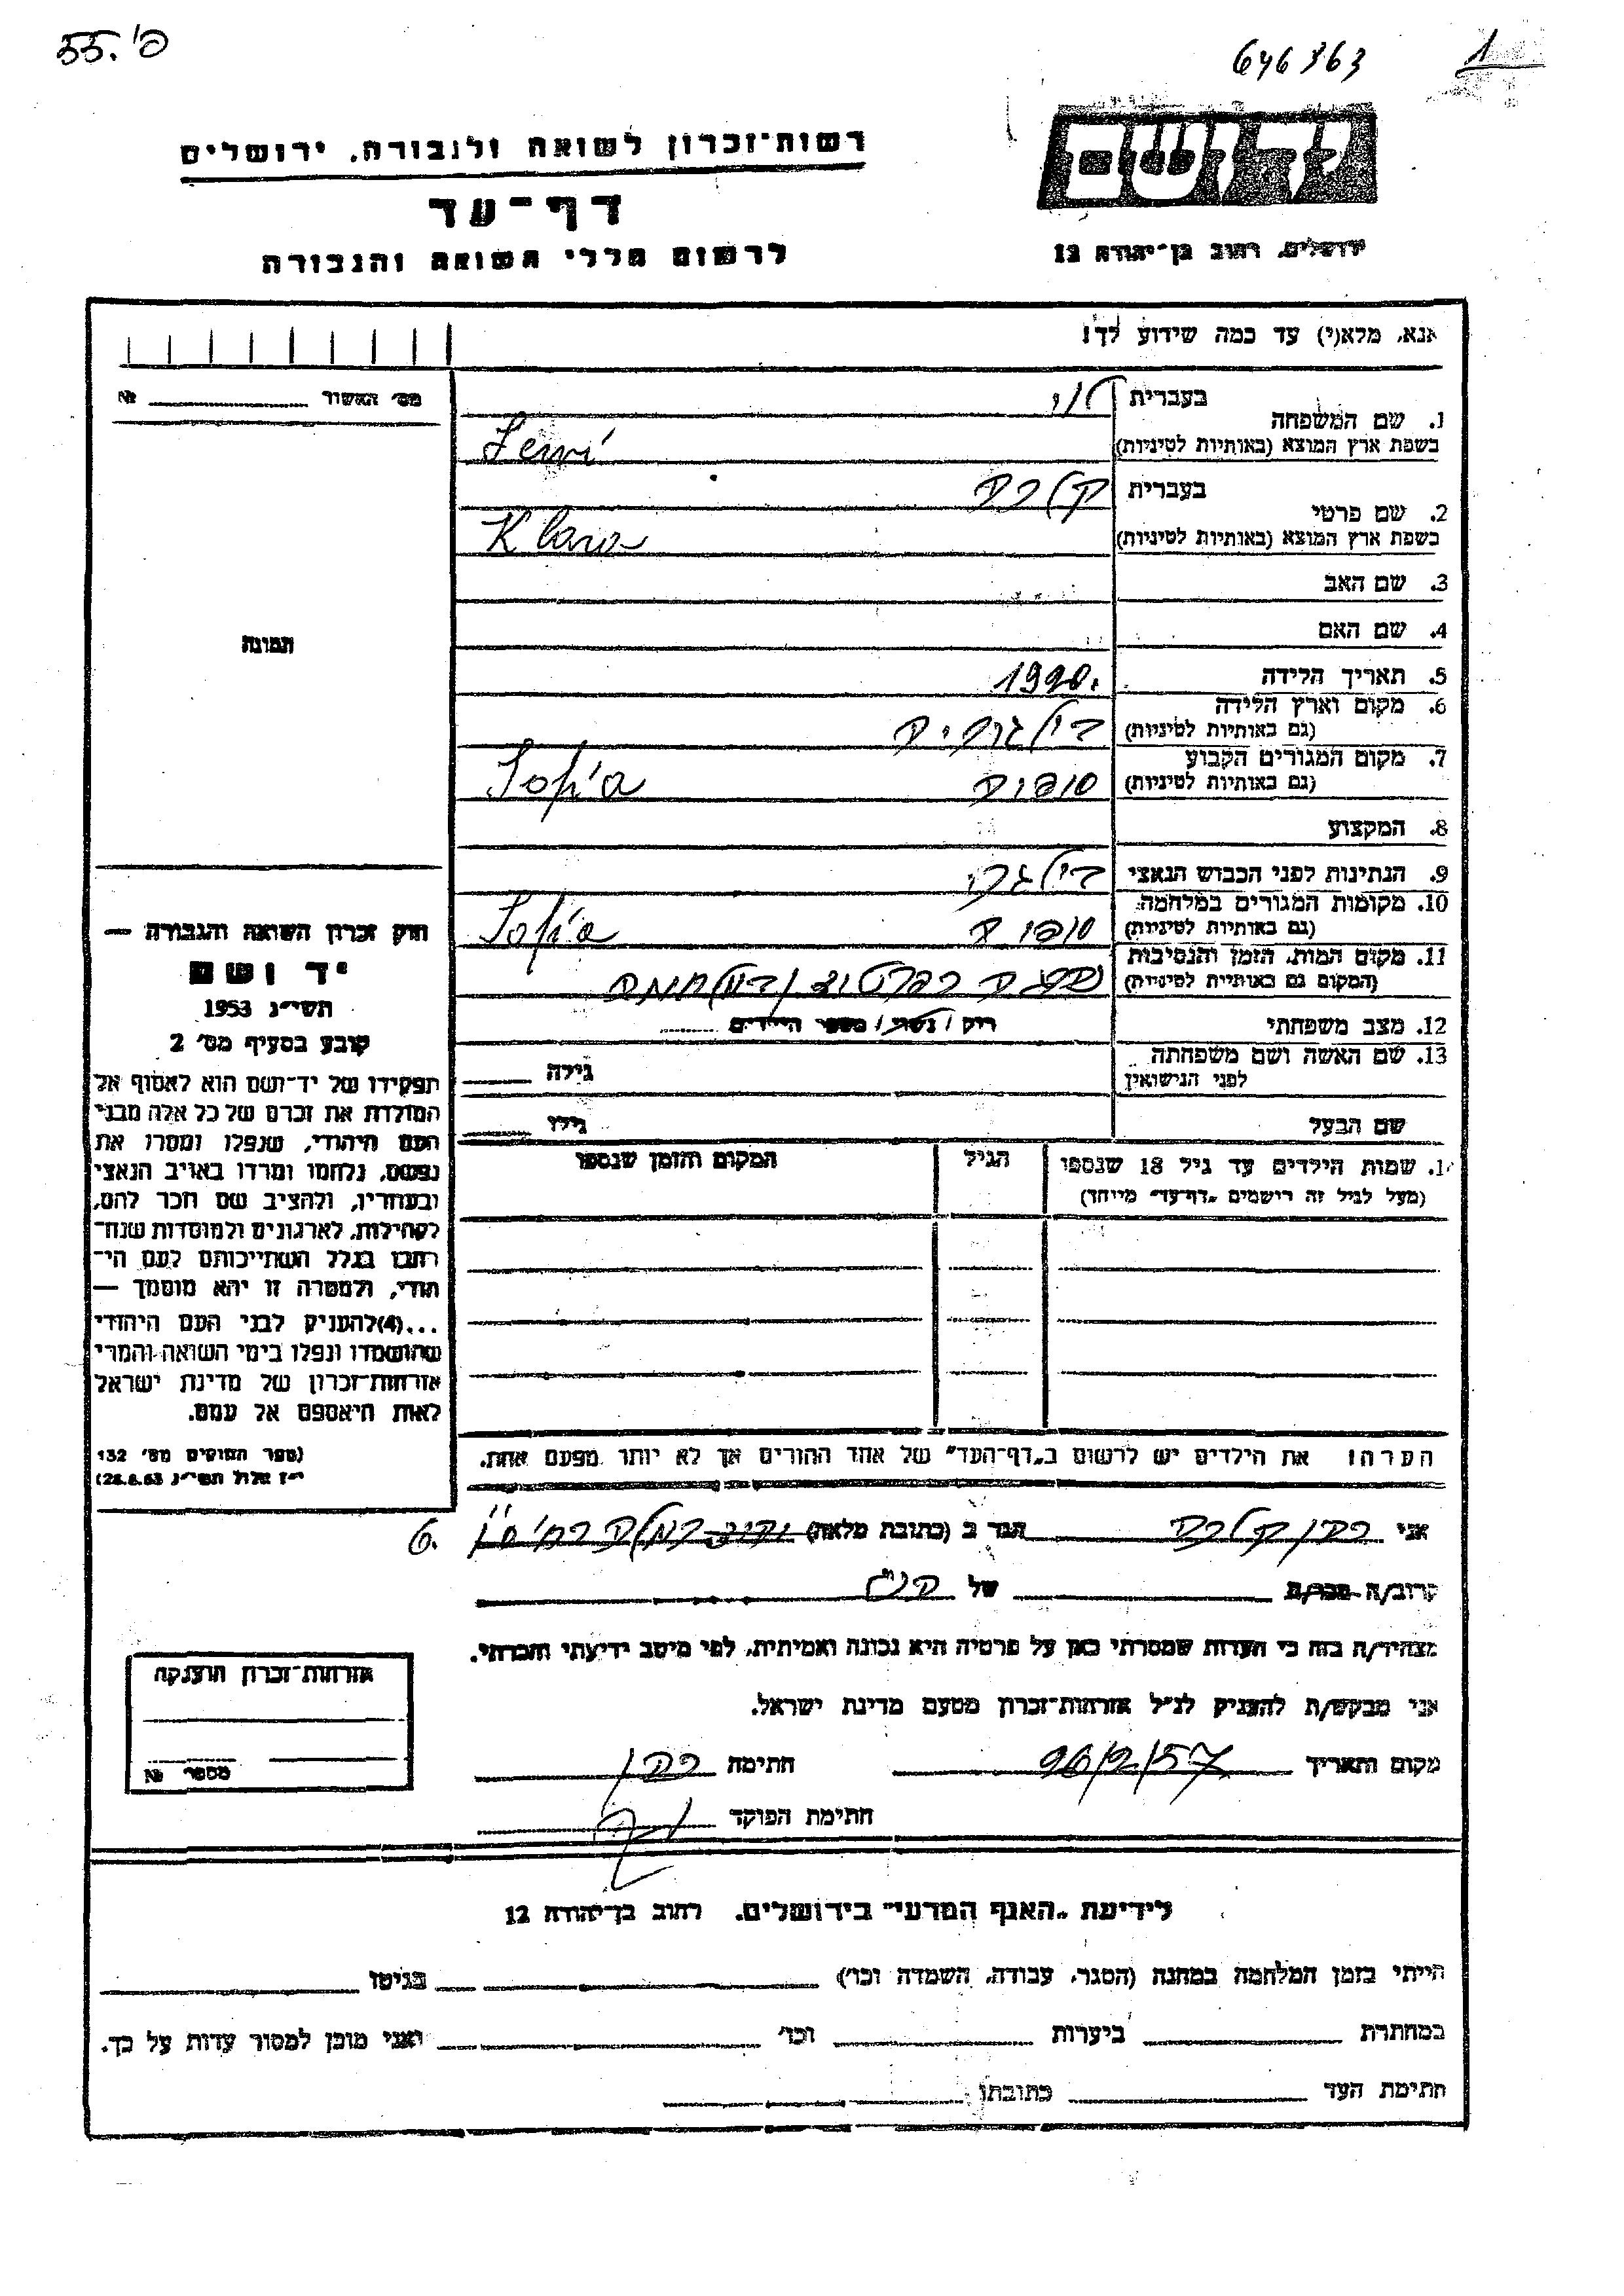 פ' .55
646363
1
יד ושם
רשות-זכרון לשואה ולגבורה, ירושלים
דף-עד
לרשום חללי השואה והגבורה
ירושלים, רחוב בן-יהודה 12
אנא, מלא(י) עד כמה שידוע לך!
מס' האשור № 
1. שם המשפחה בעברית לוי
בשפת ארץ המוצא (באותיות לטיניות) Levi
2. שם פרטי בעברית קלרה
בשפת ארץ המוצא (באותיות לטיניות) Klara
3. שם האב
4. שם האם
תמונה
5. תאריך הלידה 1920.
6. מקום וארץ הלידה
(גם באותיות לטיניות) בולגריה
7. מקום המגורים הקבוע
(גם באותיות לטיניות) סופיה Sofia
8. המקצוע
9. הנתינות לפני הכבוש הנאצי בולגרי
10. מקומות המגורים במלחמה
(גם באותיות לטיניות) סופיה Sofia
11. מקום המות, הזמן והנסיבות
(המקום גם באותיות לטיניות)
12. מצב משפחתי רוק / נשוי / מספר הילדים
13. שם האשה ושם משפחתה
לפני הנישואין גילה
שם הבעל גילו
14. שמות הילדים עד גיל 18 שנספו הגיל המקום והזמן שנספו
(מעל לגיל זה רישמים "דף-עד" מיוחד)
חוק זכרון השואה והגבורה —
יד ושם
תשי"ג 1953
קובע בסעיף מס' 2
תפקידו של יד-ושם הוא לאסוף אל
המולדת את זכרם של כל אלה מבני
העם היהודי, שנפלו ומסרו את
נפשם, נלחמו ומרדו באויב הנאצי
ובעוזריו, ולהציב שם וזכר להם,
לקהילות, לארגונים ולמוסדות שנח-
רבו בגלל השתייכותם לעם הי-
הודי, ולמטרה זו יהא מוסמך —
...(4) להעניק לבני העם היהודי
שהושמדו ונפלו בימי השואה והמרי
אזרחות-זכרון של מדינת ישראל
לאות היאספם אל עמם.
(ספר החוקים מס' 132
י"ז אלול תשי"ג 28.8.53)
הערה: את הילדים יש לרשום ב"דף-העד" של אחד ההורים אך לא יותר מפעם אחת.
אני כהן קלרה הגר ב (כתובת מלאה)
6.
קרוב/ה מכר/ה של הנ"ל
מצהיר/ה בזה כי העדות שמסרתי כאן על פרטיה היא נכונה ואמיתית, לפי מיטב ידיעתי והכרתי.
אני מבקש/ת להעניק לנ"ל אזרחות-זכרון מטעם מדינת ישראל.
מקום ותאריך 26/2/57 חתימה כהן
חתימת הפוקד
אזרחות-זכרון הוענקה
מספר №
לידיעת "האגף המדעי" בירושלים, רחוב בן-יהודה 12
הייתי בזמן המלחמה במחנה (הסגר, עבודה, השמדה וכו') בגיטו
במחתרת ביערות וכו' ואני מוכן למסור עדות על כך.
חתימת העד כתובתו